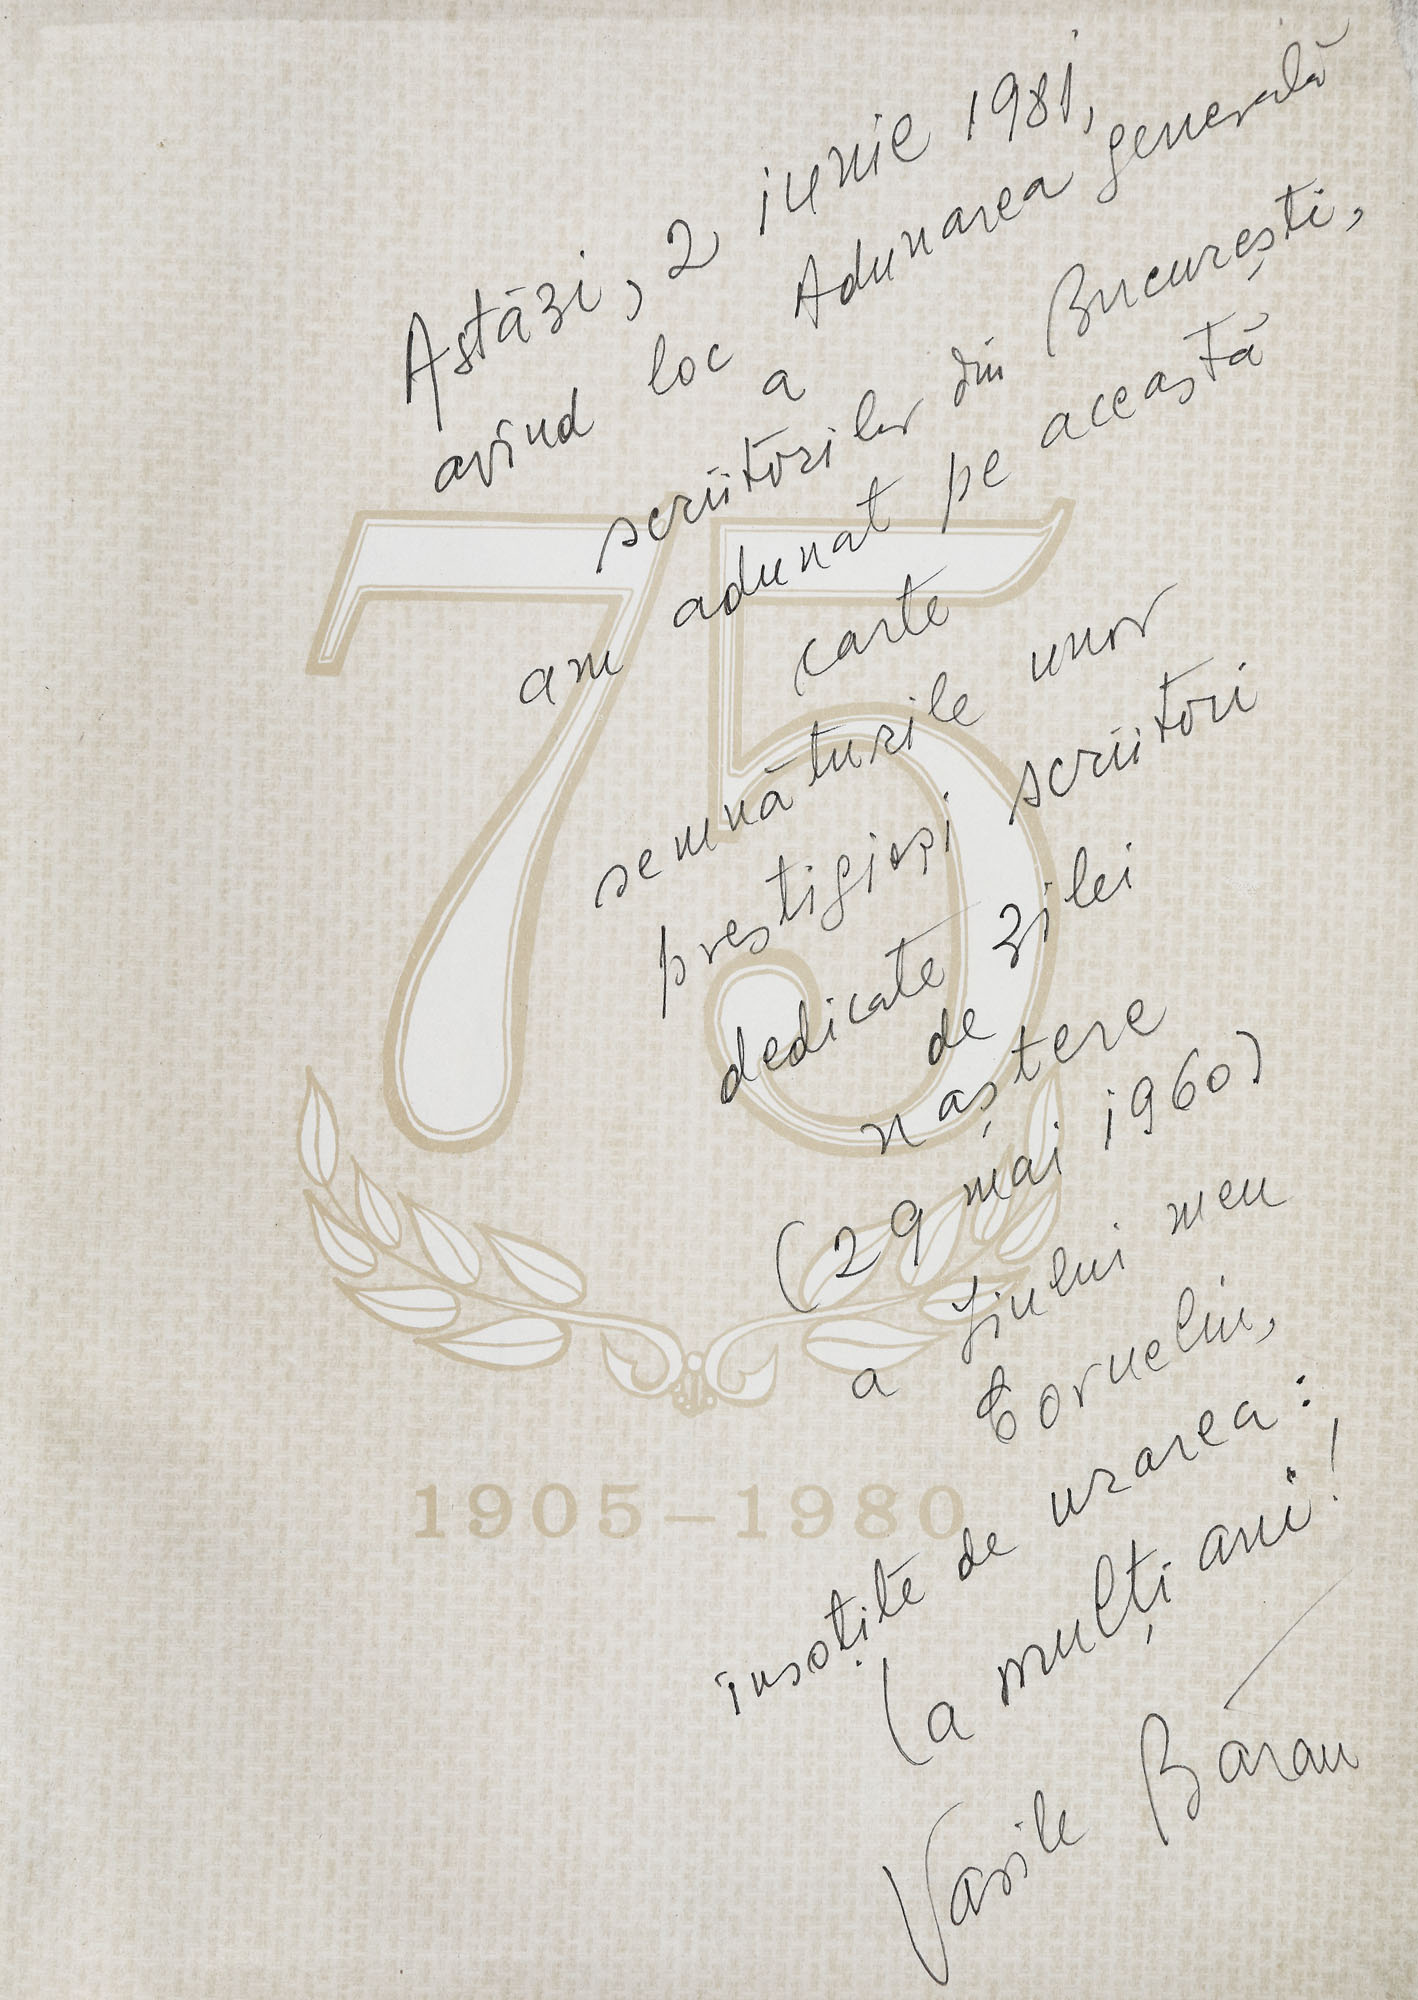 Astăzi, 2 iunie 1981,
avînd loc Adunarea generală
a
scriitorilor din București,
am adunat pe această
carte
semnăturile unor
prestigioși scriitori
dedicate zilei
de
naștere
(29 mai 1960)
a fiului meu
Corneliu,
însoțite de urarea:
La mulți ani!
Vasile Băran
75
1905–1980